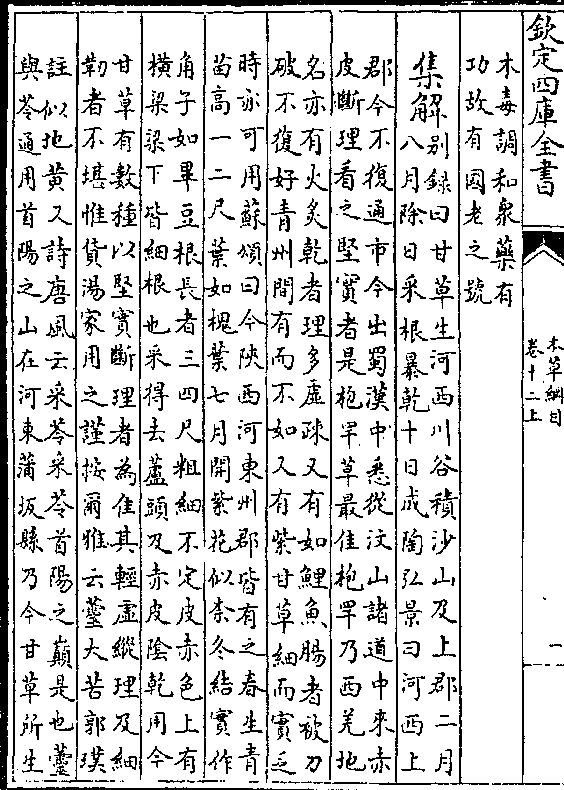 欽定四庫全書
本草綱目
卷十二上
一
木毒調和衆藥有
功故有國老之號
集解
别録曰甘草生河西川谷積沙山及上郡二月
八月除日采根暴乾十日成陶弘景曰河西上
郡今不復通市今出蜀漢中悉從汶山諸道中來赤
皮斷理看之堅實者是枹罕草最佳枹罕乃西羌地
名亦有火炙乾者理多虚疎又有如鯉魚腸者被刀
破不復好青州間有而不如又有紫甘草細而實乏
時亦可用蘇頌曰今陜西河東州郡皆有之春生青
苗高一二尺葉如槐葉七月開紫花似柰冬結實作
角子如畢豆根長者三四尺粗細不定皮赤色上有
橫梁梁下皆細根也采得去蘆頭及赤皮陰乾用今
甘草有數種以堅實斷理者為佳其輕虚縱理及細
靭者不堪惟貨湯家用之謹按爾雅云蘦大苦郭璞
註似地黄又詩唐風云采苓采苓首陽之巔是也蘦
與苓通用首陽之山在河東蒲坂縣乃今甘草所生